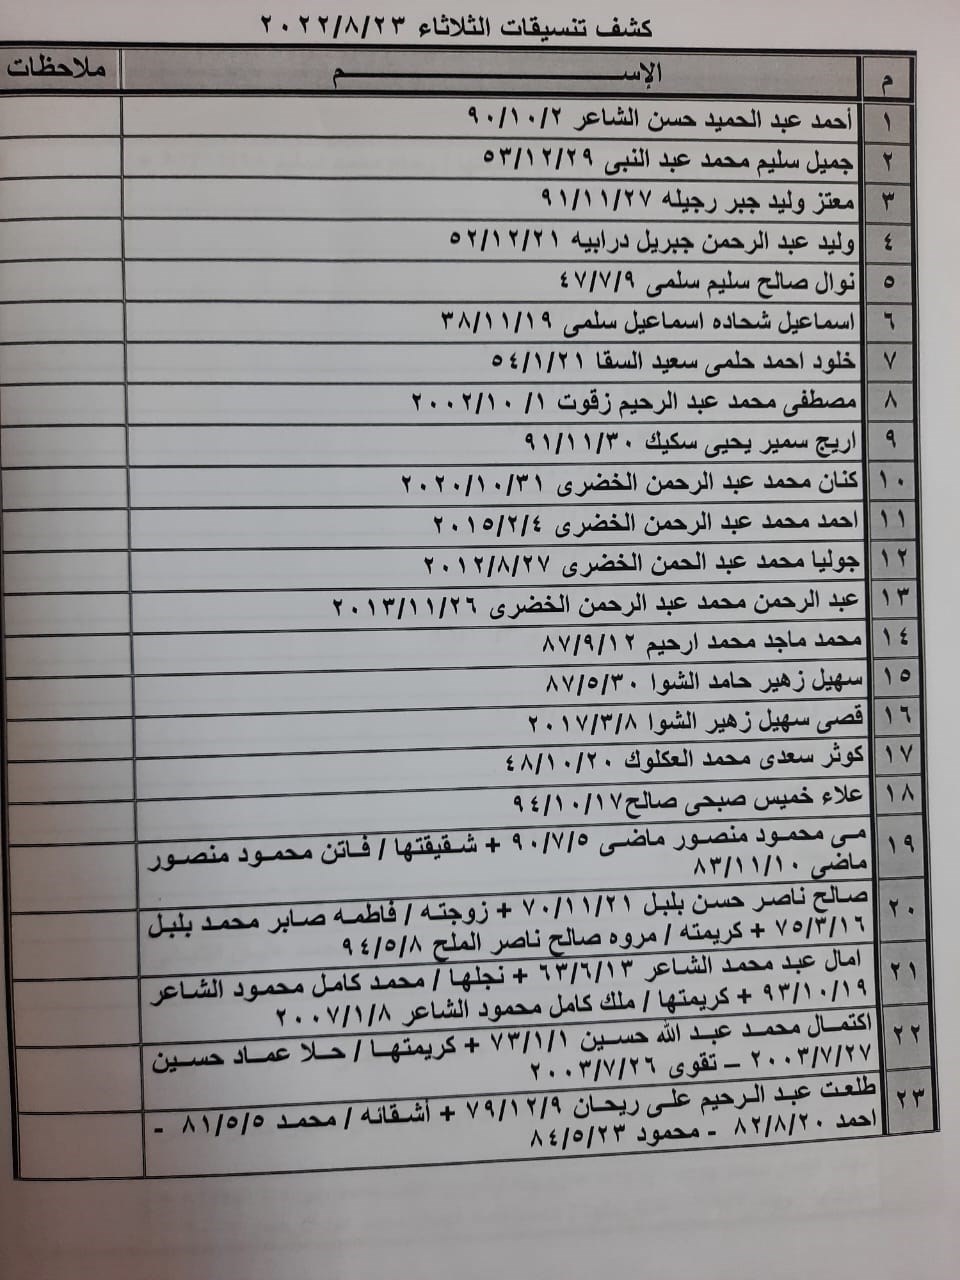 كشف تنسيقات الثلاثاء ٢٠٢٢/٨/٢٣
م الإســـــــــــم ملاحظات
١ أحمد عبد الحميد حسن الشاعر ٩٠/١٠/٢
٢ جميل سليم محمد عبد النبى ٥٣/١٢/٢٩
٣ معتز وليد جبر رجيله ٩١/١١/٢٧
٤ وليد عبد الرحمن جبريل درابيه ٥٢/١٢/٢١
٥ نوال صالح سليم سلمى ٤٧/٧/٩
٦ اسماعيل شحاده اسماعيل سلمى ٣٨/١١/١٩
٧ خلود احمد حلمى سعيد السقا ٥٤/١/٢١
٨ مصطفى محمد عبد الرحيم زقوت ٢٠٠٢/١٠ /١
٩ اريج سمير يحيى سكيك ٩١/١١/٣٠
١٠ كنان محمد عبد الرحمن الخضرى ٢٠٢٠/١٠/٣١
١١ احمد محمد عبد الرحمن الخضرى ٢٠١٥/٢/٤
١٢ جوليا محمد عبد الحمن الخضرى ٢٠١٢/٨/٢٧
١٣ عبد الرحمن محمد عبد الرحمن الخضرى ٢٠١٣/١١/٢٦
١٤ محمد ماجد محمد ارحيم ٨٧/٩/١٢
١٥ سهيل زهير حامد الشوا ٨٧/٥/٣٠
١٦ قصى سهيل زهير الشوا ٢٠١٧/٣/٨
١٧ كوثر سعدى محمد العكلوك ٤٨/١٠/٢٠
١٨ علاء خميس صبحى صالح٩٤/١٠/١٧
١٩ مى محمود منصور ماضى ٩٠/٧/٥ + شقيقتها / فاتن محمود منصور
ماضى ٨٣/١١/١٠
٢٠ صالح ناصر حسن بلبل ٧٠/١١/٢١ + زوجته / فاطمه صابر محمد بلبل
٧٥/٣/١٦ + كريمته / مروه صالح ناصر الملح ٩٤/٥/٨
٢١ امال عبد محمد الشاعر ٦٣/٦/١٣ + نجلها / محمد كامل محمود الشاعر
٩٣/١٠/١٩ + كريمتها / ملك كامل محمود الشاعر ٢٠٠٧/١/٨
٢٢ اكتمال محمد عبد الله حسين ٧٣/١/١ + كريمتها / حلا عماد حسين
٢٠٠٣/٧/٢٧ – تقوى ٢٠٠٣/٧/٢٦
٢٣ طلعت عبد الرحيم على ريحان ٧٩/١٢/٩ + أشقائه / محمد ٨١/٥/٥ -
احمد ٨٢/٨/٢٠ - محمود ٨٤/٥/٢٣